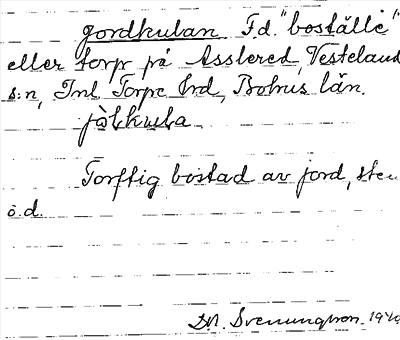 Jordkulan F.d. "boställe"
eller torp på Asslered, Vesteland
s:n, Inl Torpe hrd, Bohus län.
jòƚkuƚa
Torftig bostad av jord, sten
ö.d.
D.A. Svenungsson. 19